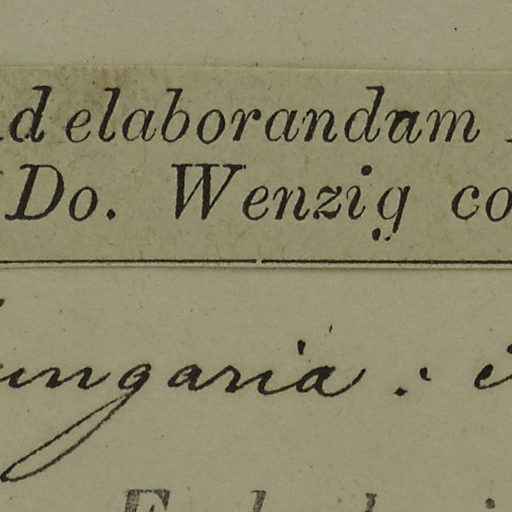 ad elaborandum
Do. Wenzig co
ungaria :